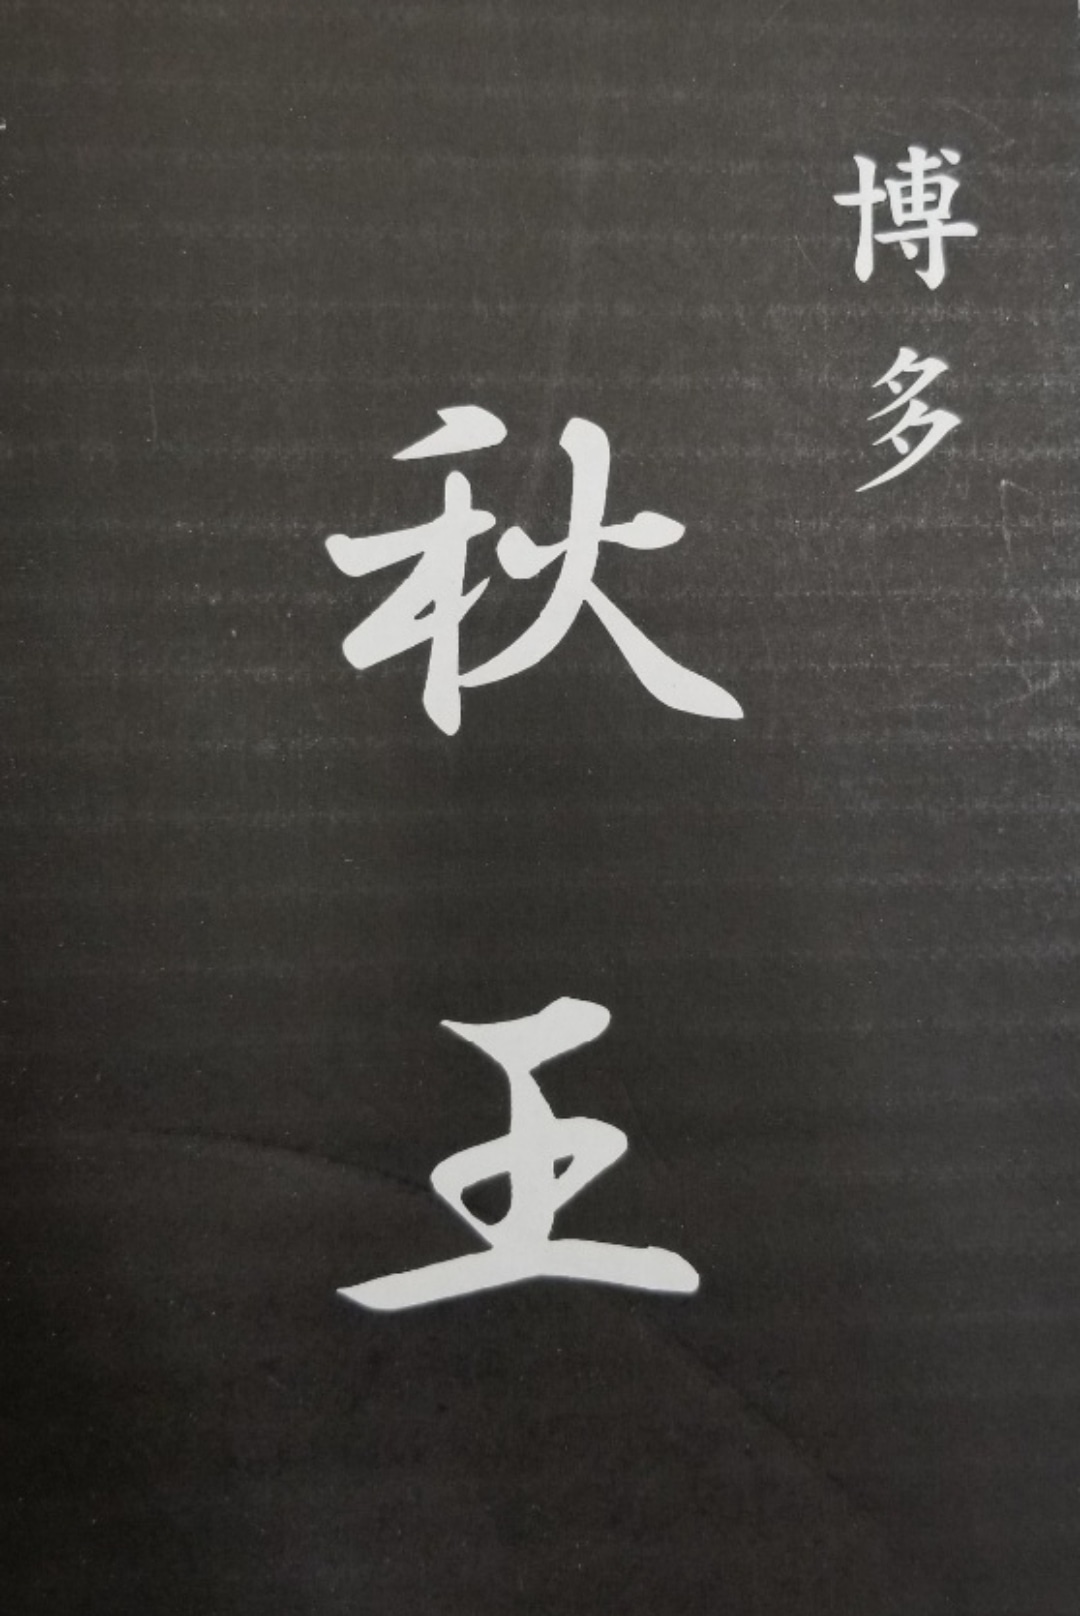 博多
秋王